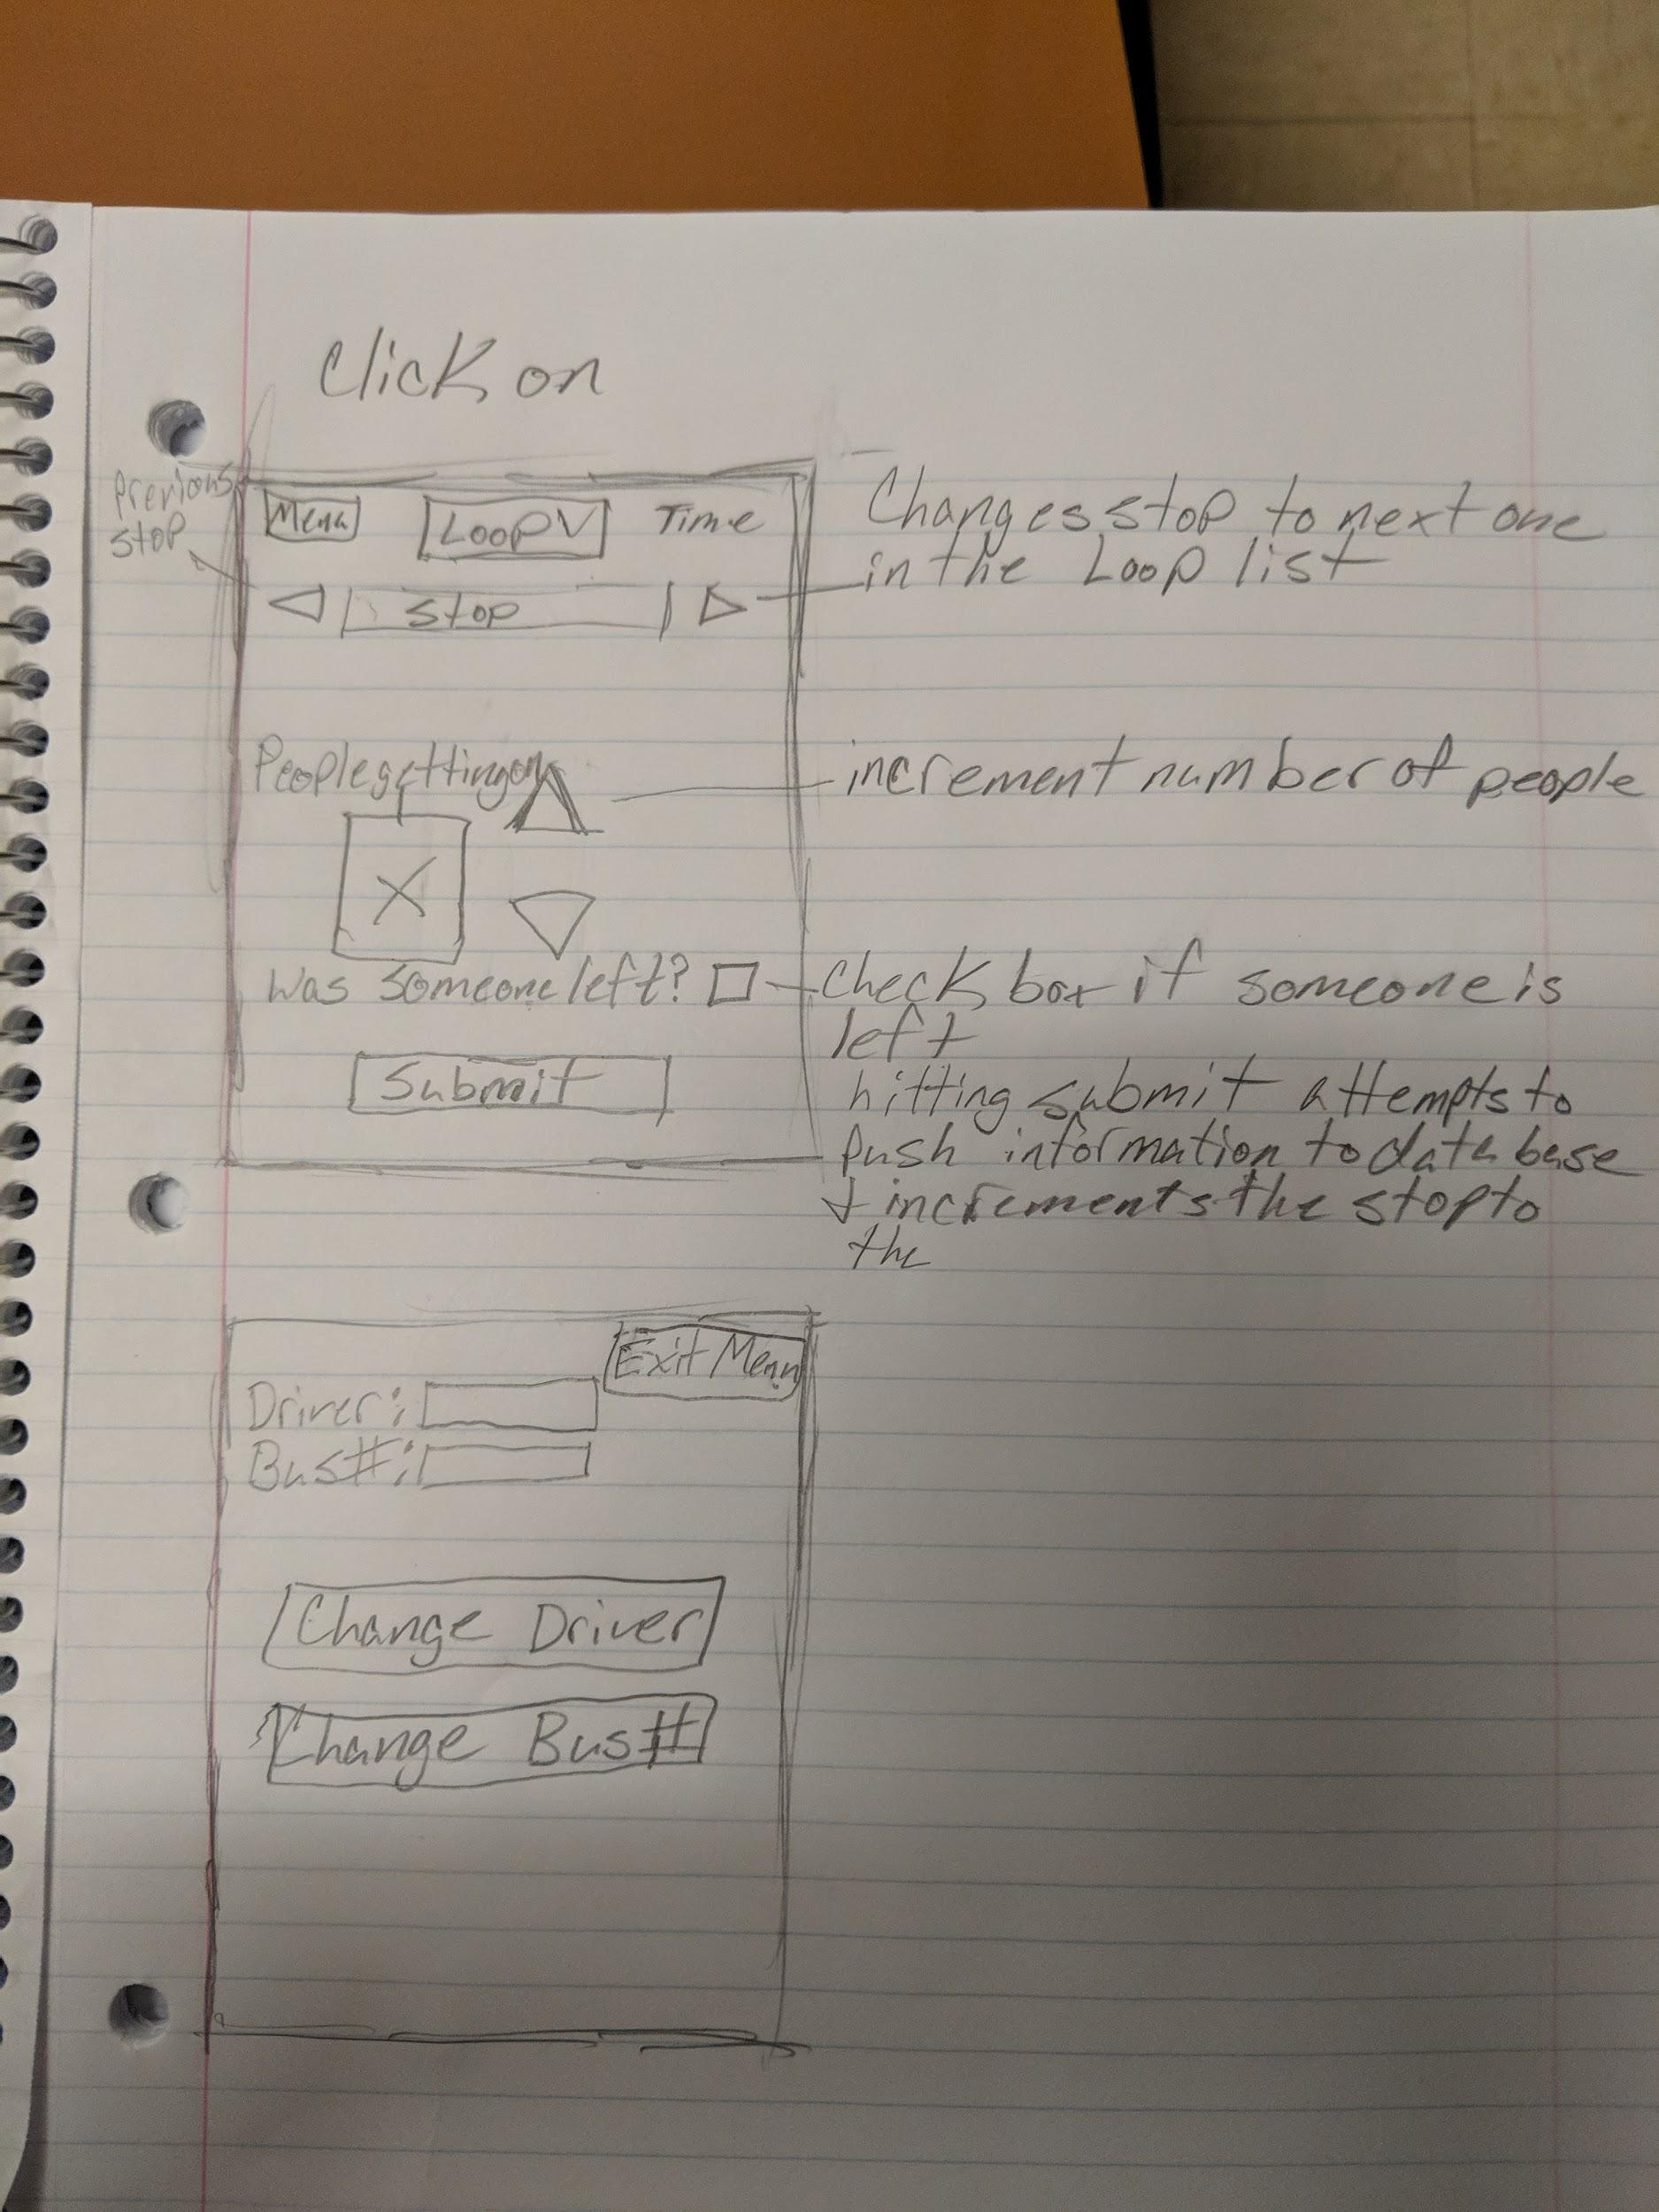 Click on
Previous
stop
Menu Loop V Time
Changes stop to next one
in the Loop list
stop
People getting on
increment number of people
X
Was someone left?
Check box if someone is
left
Submit
hitting submit attempts to
push information to data base
+ increments the stop to
the
Exit Menu
Driver:
Bus#:
Change Driver
Change Bus#